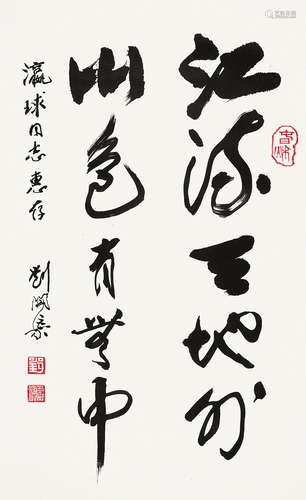 江流天地外
山色有无中
瀛球同志惠存
刘开渠